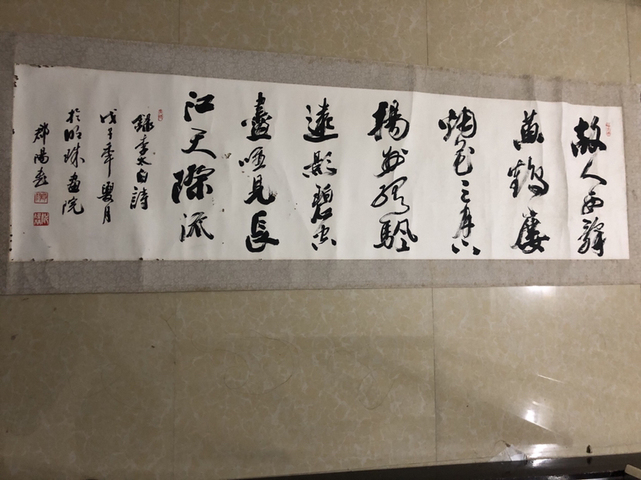 故人西辭
黄鶴楼
烟花三月下
揚州孤帆
遠影碧空
盡唯見長
江天際流
録李太白詩
戊子年月
於明珠畫院